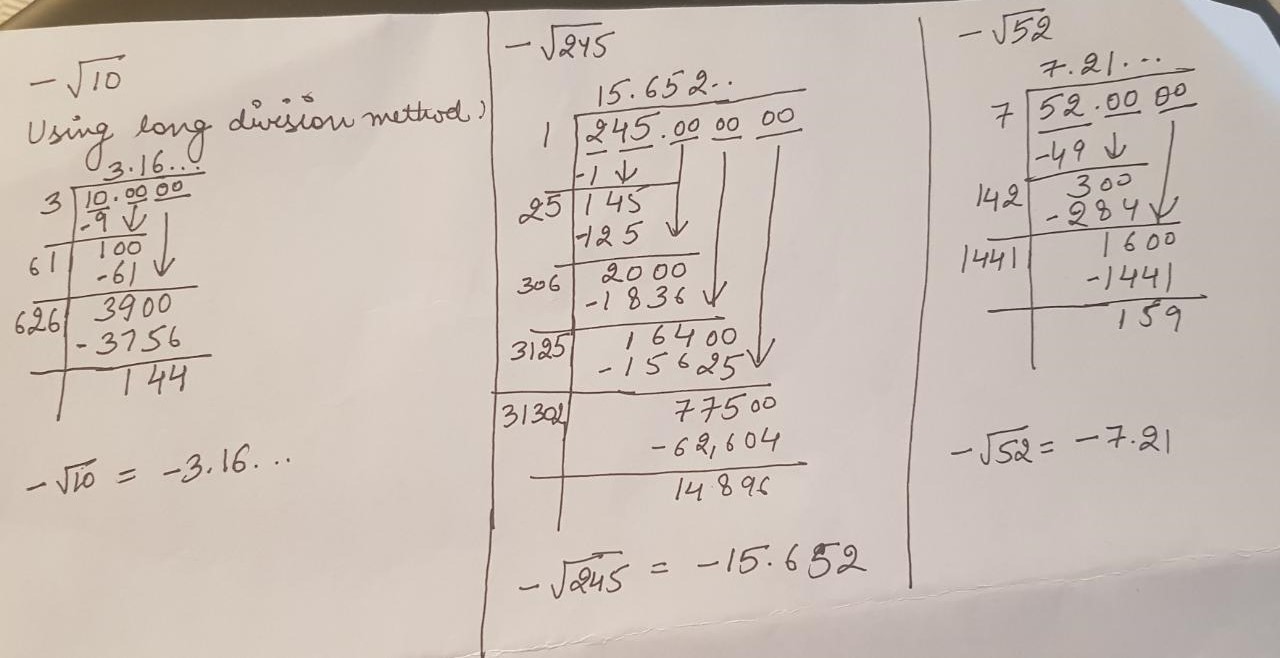 -√10
Using long division method:
3.16...
3 10.00 00
-9
61 100
-61
626 3900
-3756
144
-√10 = -3.16...
-√245
15.652..
1 245.00 00 00
-1
25 145
-125
306 2000
-1836
3125 16400
-15625
31302 77500
-62,604
14896
-√245 = -15.652
-√52
7.21...
7 52.00 00
-49
142 300
-284
1441 1600
-1441
159
-√52 = -7.21